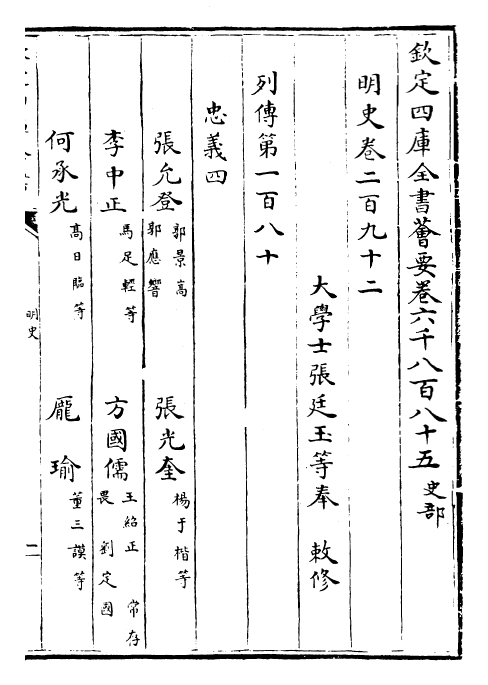 欽定四庫全書薈要卷六千八百八十五 史部
明史卷二百九十二
大學士張廷玉等奉 敕修
列傳第一百八十
忠義四
張允登 郭景嵩 郭應響 張光奎 楊于楷等
李中正 馬足輕等 方國儒 王紹正 常存畏 劉定國
何承光 高日臨等 龎瑜 董三謨等
明史